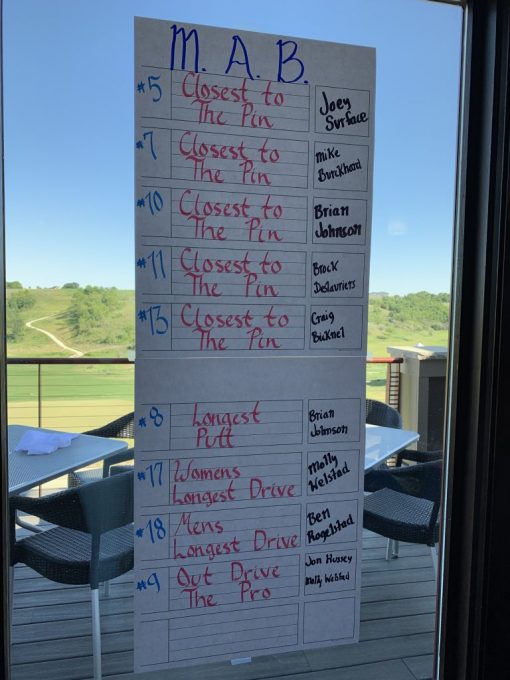 M. A. B.
#5 Closest to The Pin Joey Surface
#7 Closest to The Pin Mike Burckhard
#10 Closest to The Pin Brian Johnson
#11 Closest to The Pin Brock Deslauriers
#13 Closest to The Pin Craig Bucknel
#8 Longest Putt Brian Johnson
#17 Womens Longest Drive Molly Welstad
#18 Mens Longest Drive Ben Rogelstad
#9 Out Drive The Pro Jon Hussey Molly Welstad